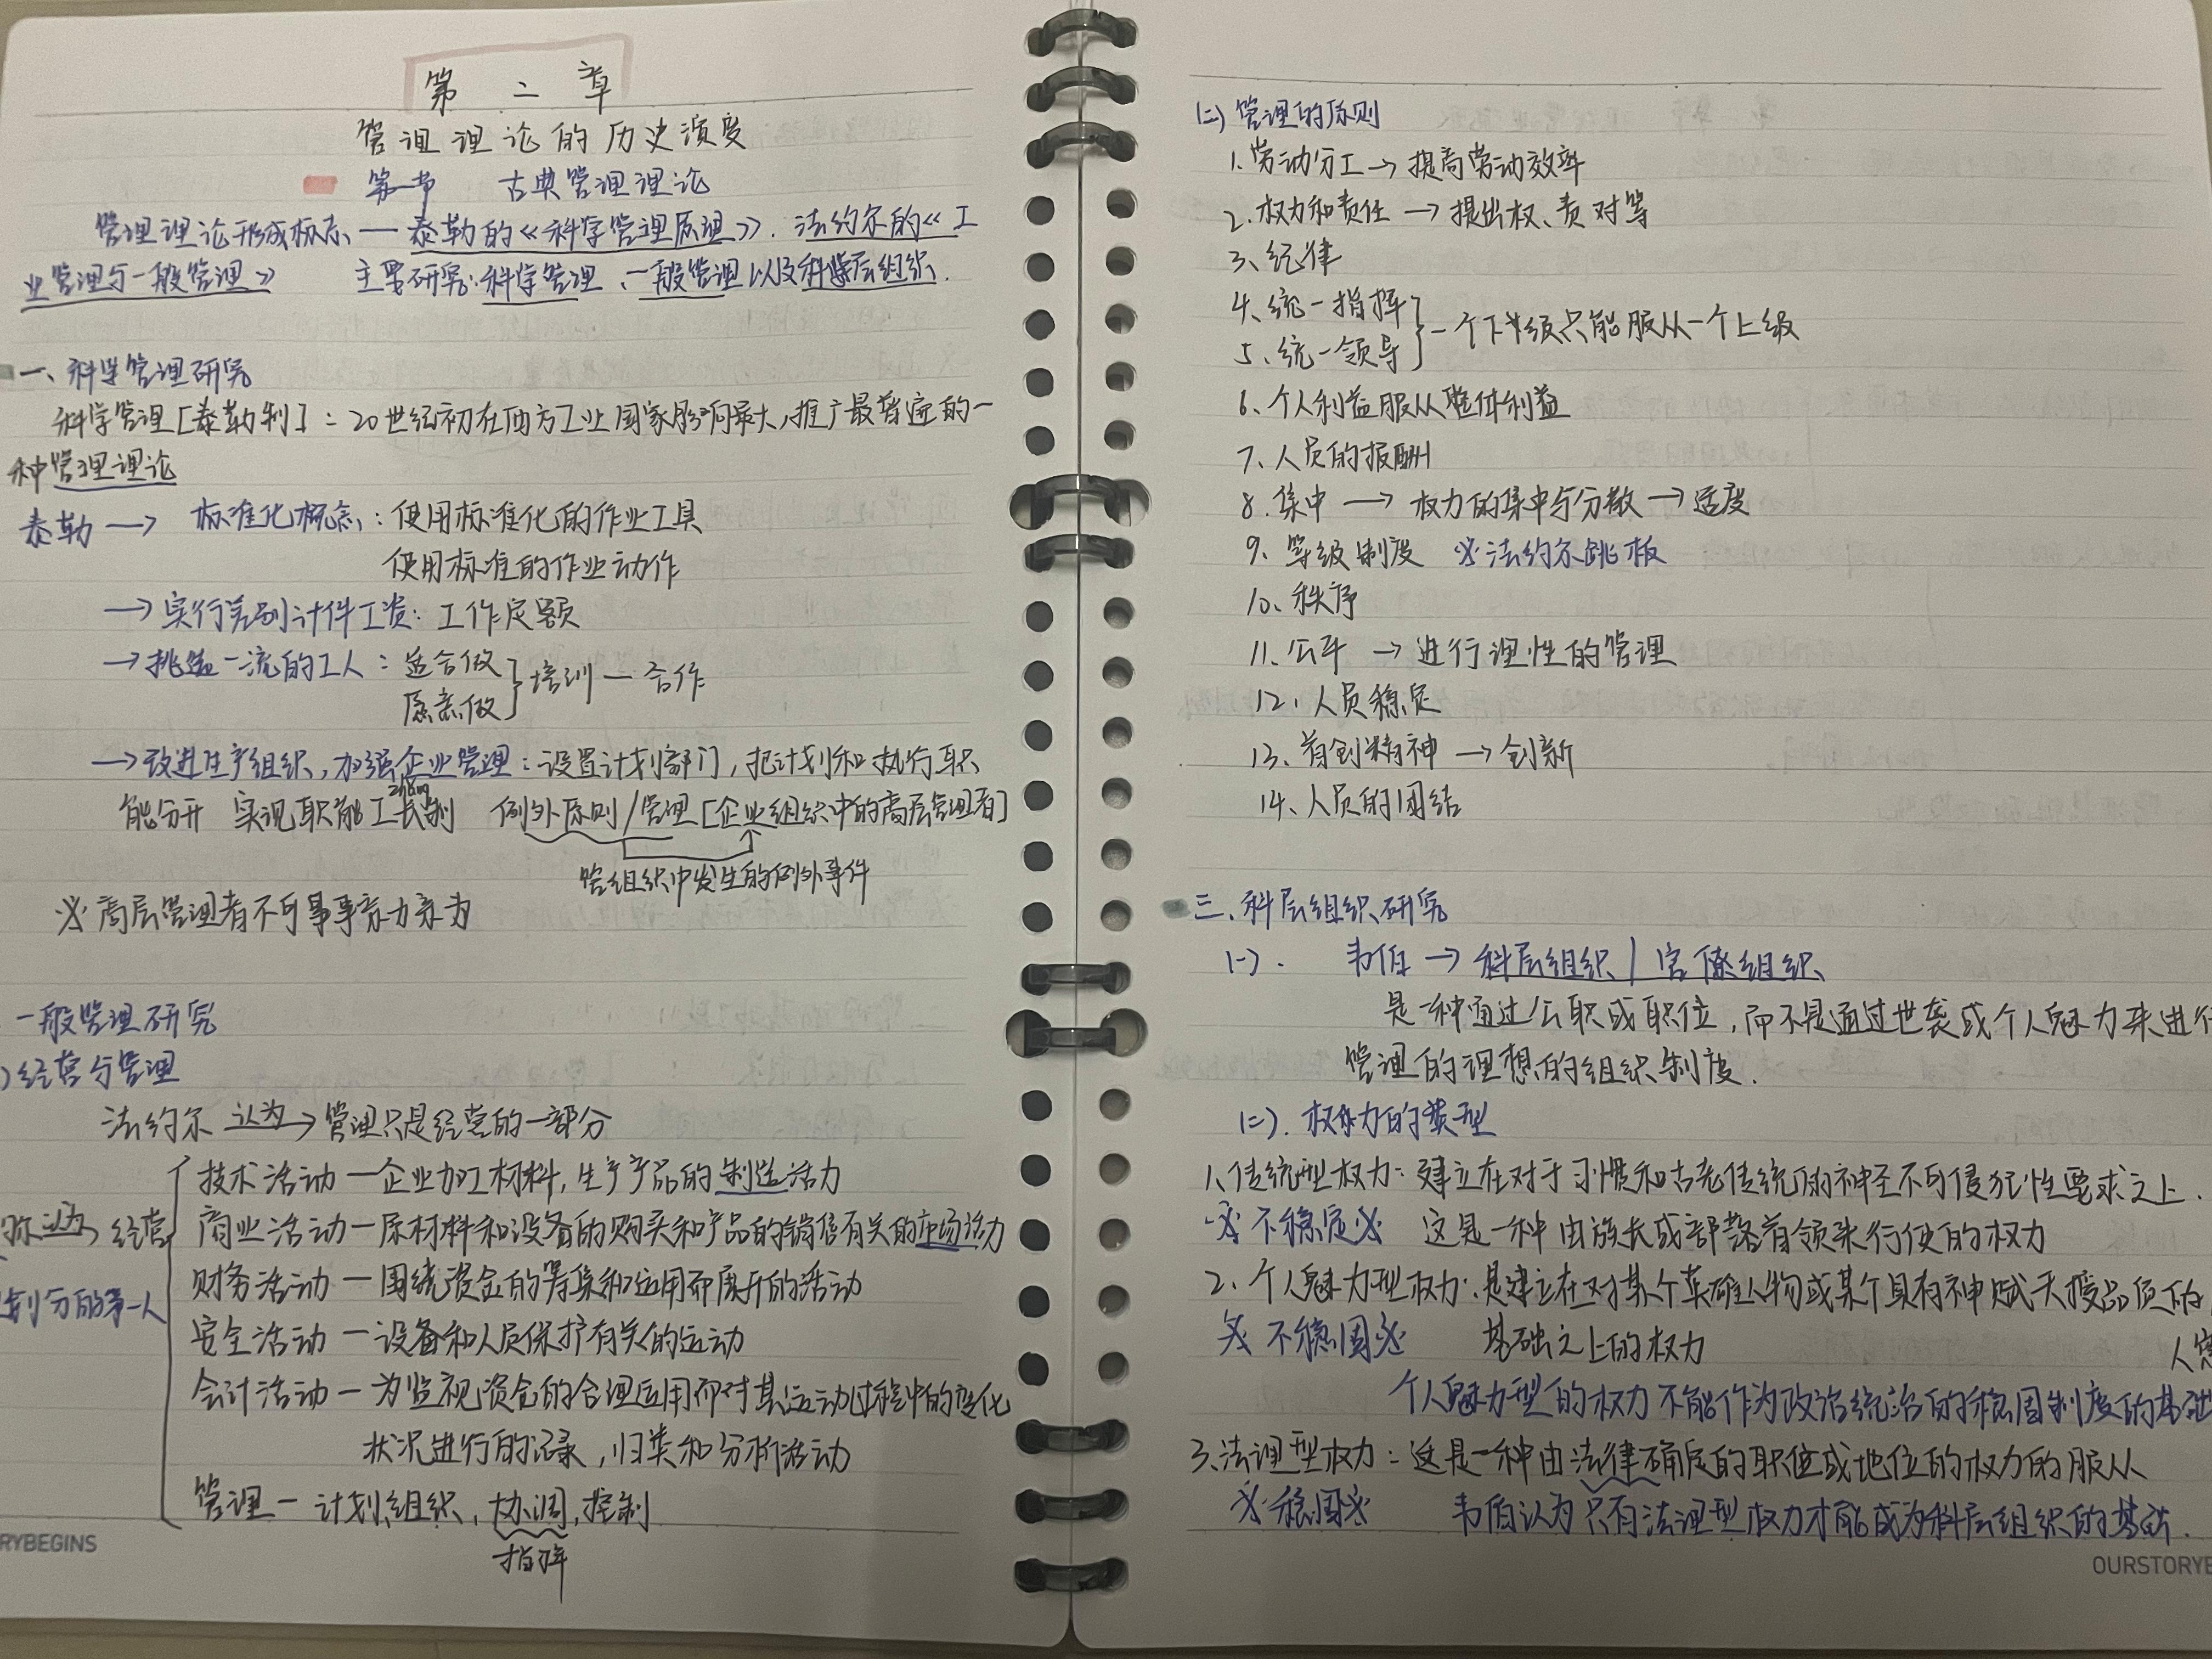 第 二 章
管理理论的历史演变
第一节 古典管理理论
管理理论形成标志 — 泰勒的《科学管理原理》. 法约尔的《工
业管理与一般管理》 主要研究:科学管理、一般管理以及科层组织.
一、科学管理研究
科学管理[泰勒制]:20世纪初在西方工业国家影响最大,推广最普遍的一
种管理理论
泰勒 → 标准化概念:使用标准化的作业工具
使用标准的作业动作
→ 实行差别计件工资:工作定额
→ 挑选一流的工人:适合做
愿意做 } 培训 — 合作
→ 改进生产组织,加强企业管理:设置计划部门,把计划和执行职
zhang
能分开 实现职能工长制 例外原则/管理[企业组织中的高层管理者]
管组织中发生的例外事件
※ 高层管理者不可事事亲力亲为
一般管理研究
)经营与管理
法约尔 认为→ 管理只是经营的一部分
技术活动 — 企业加工材料,生产产品的制造活力
商业活动 — 原材料和设备的购买和产品的销售有关的市场活力
尔认为 经营
财务活动 — 围绕资金的筹集和运用而展开的活动
划分的第一人
安全活动 — 设备和人员保护有关的运动
会计活动 — 为监视资金的合理运用而对其运动过程中的变化
状况进行的记录,归类和分析活动
管理 — 计划、组织、协调,控制
指挥
RYBEGINS
(二) 管理的原则
1. 劳动分工 → 提高劳动效率
2. 权力和责任 → 提出权、责对等
3、纪律
4、统一指挥
5、统一领导 } 一个下级只能服从一个上级
6、个人利益服从整体利益
7、人员的报酬
8. 集中 → 权力的集中与分散 → 适度
9、等级制度 ※法约尔跳板
10、秩序
11、公平 → 进行理性的管理
12、人员稳定
13、首创精神 → 创新
14、人员的团结
三、科层组织研究
(一). 韦伯 → 科层组织/官僚组织
是一种通过公职或职位,而不是通过世袭或个人魅力来进行
管理的理想的组织制度.
(二). 权力的类型
1、传统型权力:建立在对于习惯和古老传统的神圣不可侵犯性要求之上.
※ 不稳定※ 这是一种由族长或部落首领来行使的权力
2、个人魅力型权力:是建立在对某个英雄人物或某个具有神赋天授品质的
人
※ 不稳固※ 基础之上的权力
个人魅力型的权力不能作为政治统治的稳固制度的基础
3、法理型权力:这是一种由法律确定的职位或地位的权力的服从
※稳固※ 韦伯认为只有法理型权力才能成为科层组织的基础.
OURSTORYB